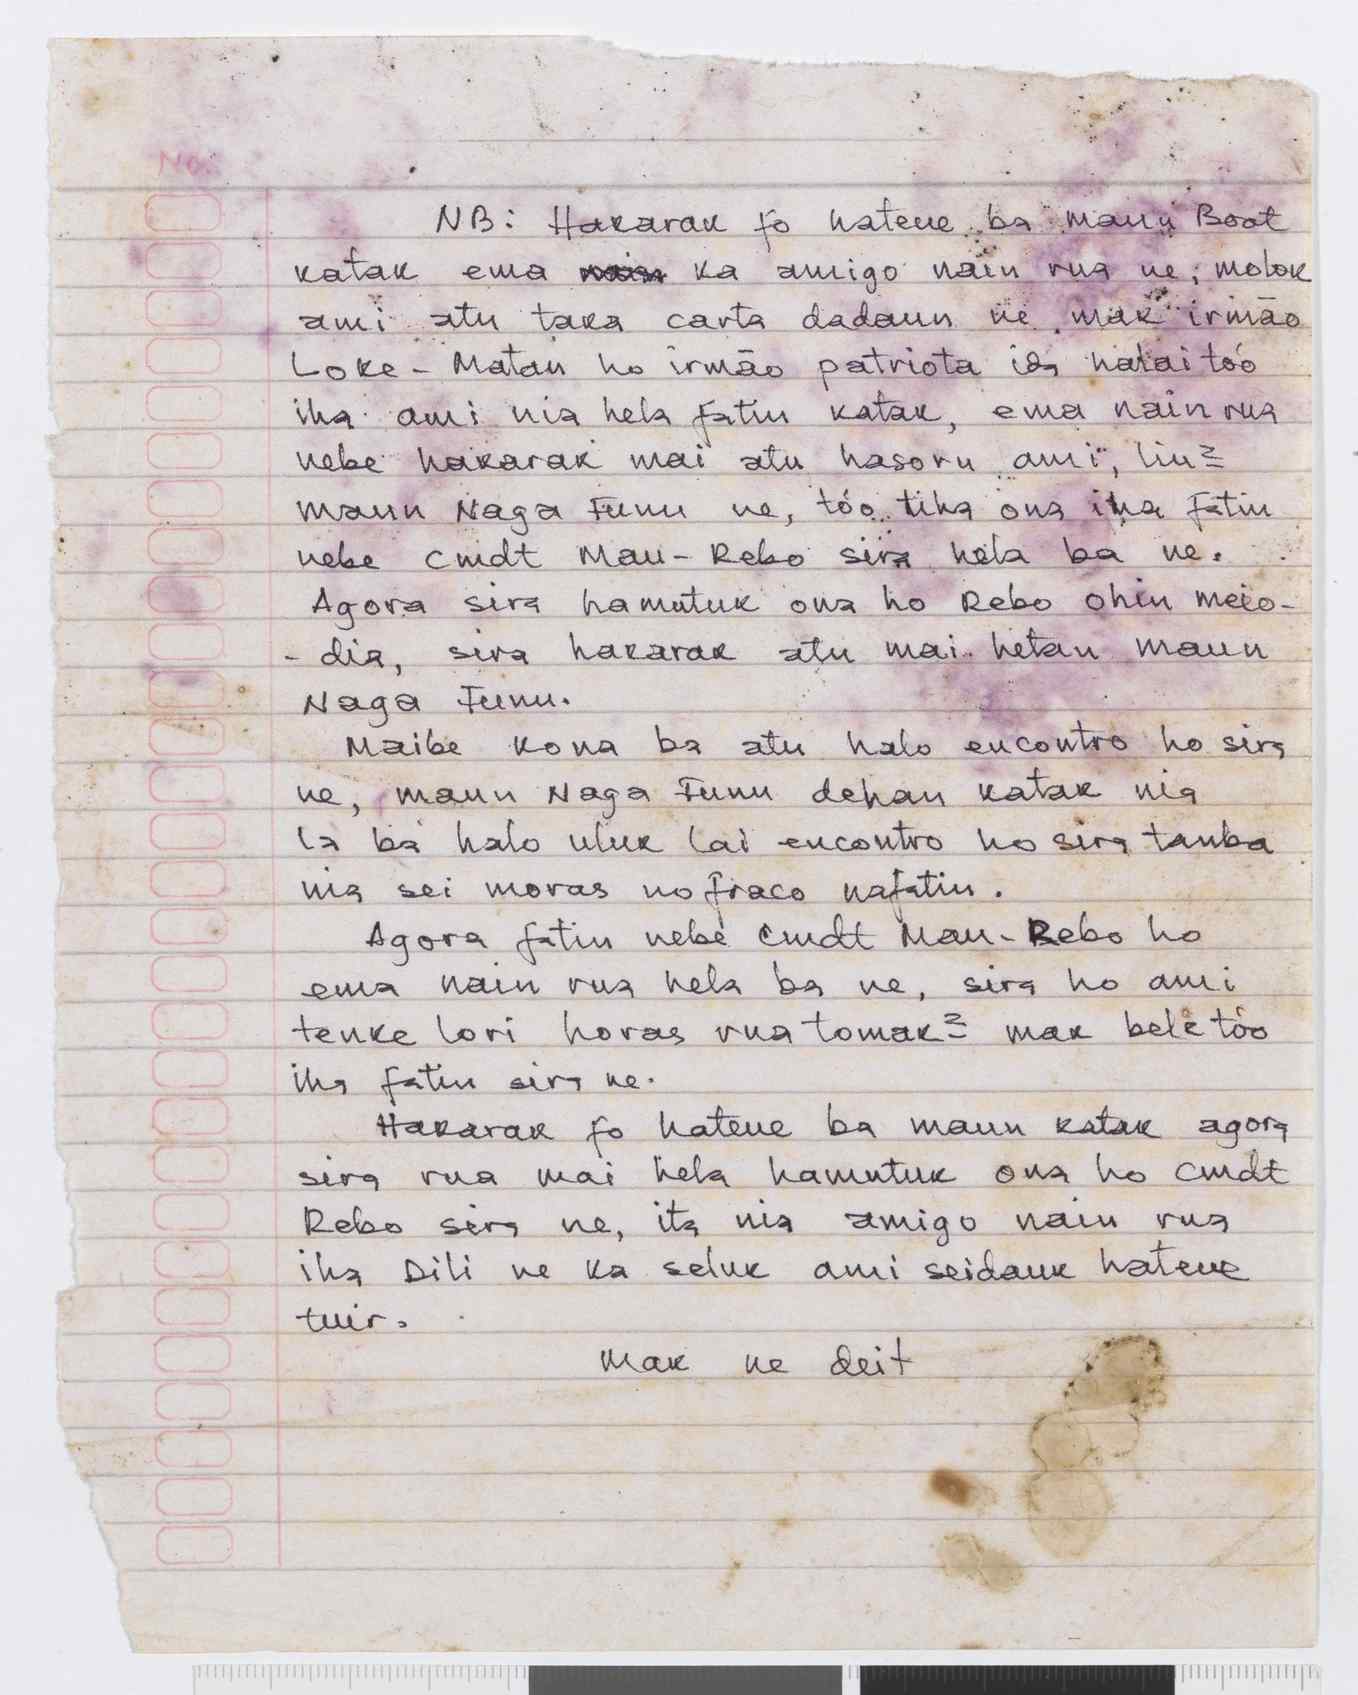 No.
NB: Hakarak fo hatene ba maun Boot
katak ema ka amigo nain rua ne, molok
ami atu taka carta dadaun ne mak irmão
Loke-Matan ho irmão patriota ida halai tóo
iha ami nia hela fatin katak, ema nain rua
nebe hakarak mai atu hasoru ami, liu²
maun Naga Funu ne, tóo tiha ona iha fatin
nebe cmdt Mau-Rebo sira hela ba ne.
Agora sira hamutuk ona ho Rebo ohin meio-
-dia, sira hakarak atu mai hetan maun
Naga Funu.
Maibe kona ba atu halo encontro ho sira
ne, maun Naga Funu dehan katak nia
la bá halo uluk lai encontro ho sira tanba
nia sei moras no fraco nafatin.
Agora fatin nebé cmdt Mau-Rebo ho
ema nain rua hela ba ne, sira ho ami
tenke lori horas rua tomak² mak bele tóo
iha fatin sira ne.
Hakarak fo hatene ba maun katak agora
sira rua mai hela hamutuk ona ho cmdt
Rebo sira ne, ita nia amigo nain rua
iha Dili ne ka seluk ami seidauk hatene
tuir.
Mak ne deit